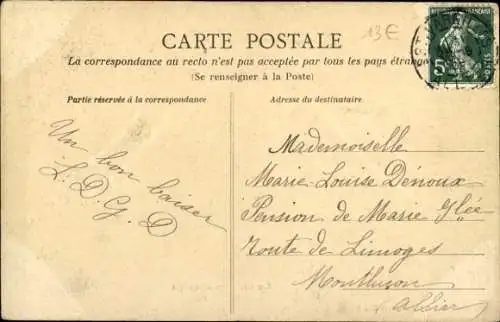 13€
CARTE POSTALE
La correspondance au recto n'est pas acceptée par tous les pays étrang
(Se renseigner à la Poste)
Partie réservée à la correspondance
Adresse du destinataire
5
Un bon baiser
L. D. G. D
Mademoiselle
Marie-Louise Dénoux
Pension de Marie
Route de Limoges
Montluçon
Allier